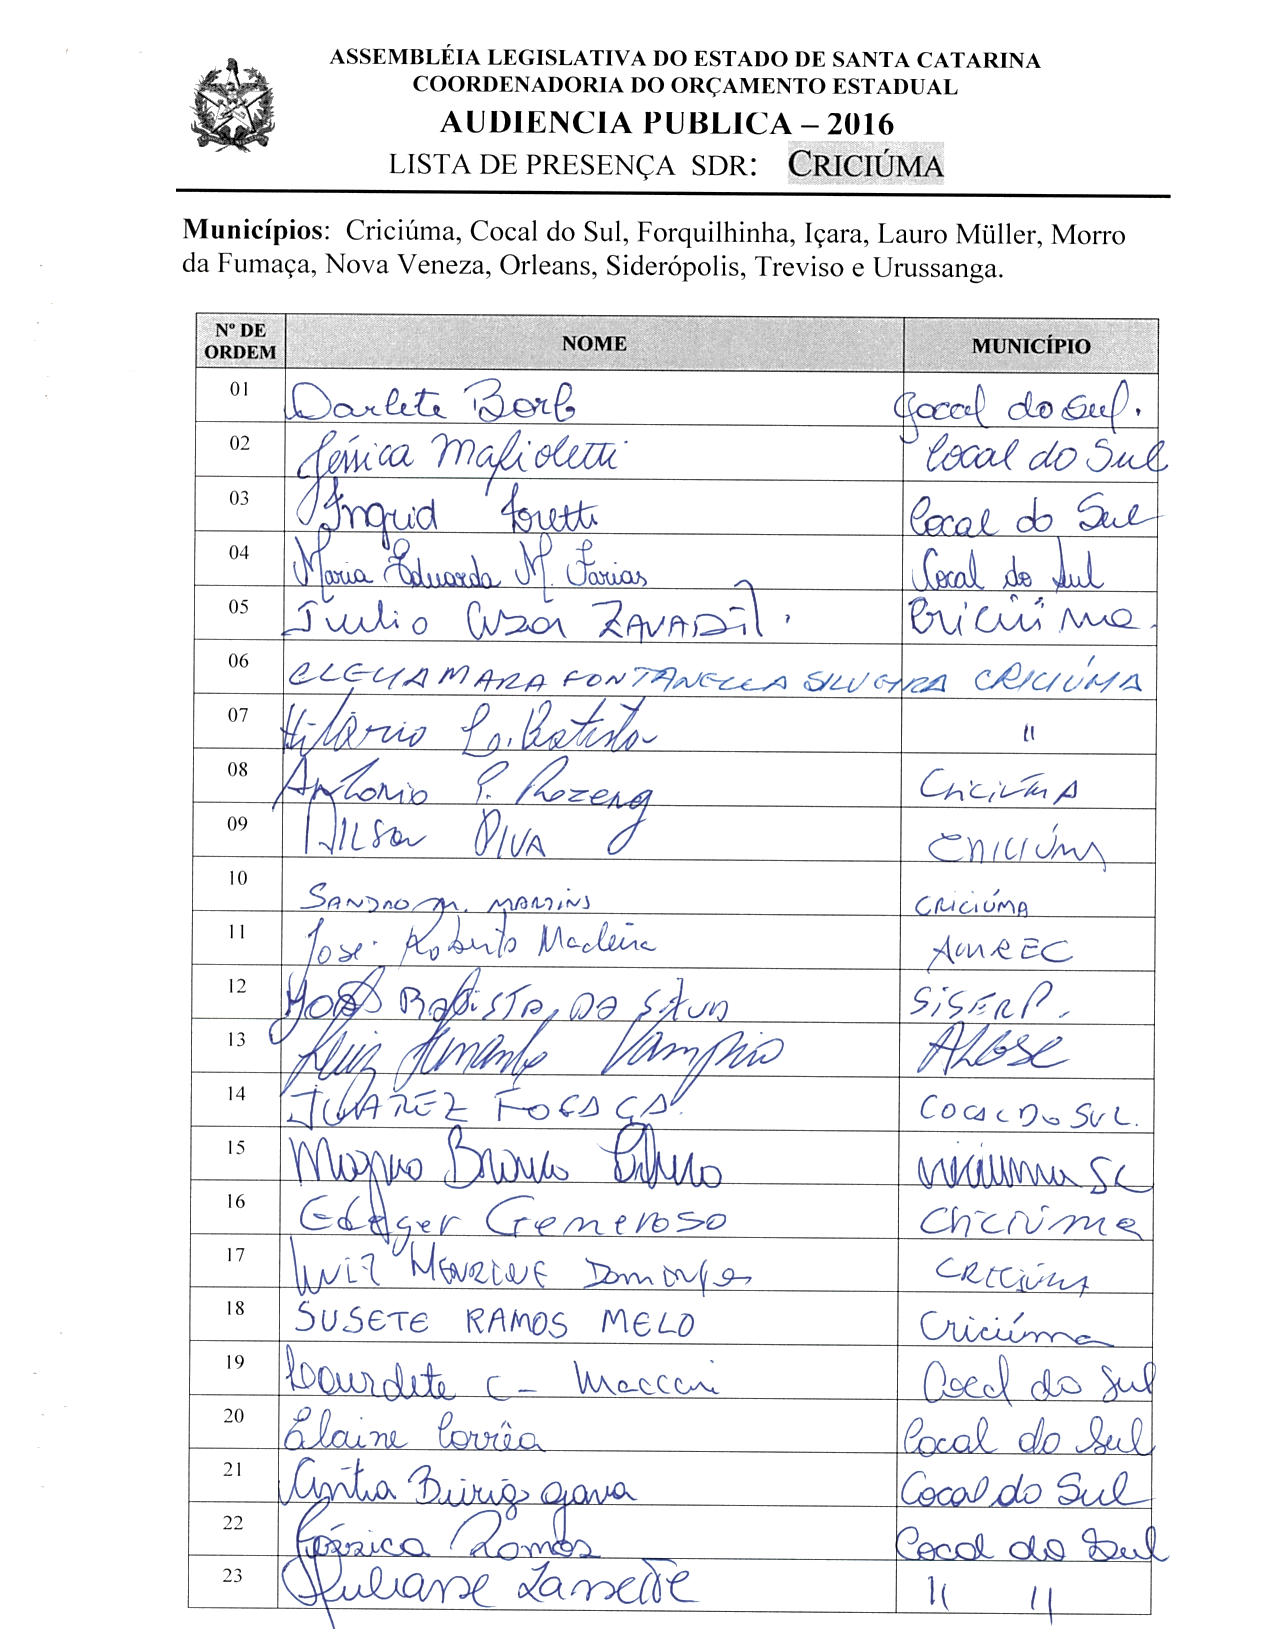 ASSEMBLÉIA LEGISLATIVA DO ESTADO DE SANTA CATARINA
COORDENADORIA DO ORÇAMENTO ESTADUAL
AUDIENCIA PUBLICA – 2016
LISTA DE PRESENÇA SDR: CRICIÚMA
Municípios: Criciúma, Cocal do Sul, Forquilhinha, Içara, Lauro Müller, Morro
da Fumaça, Nova Veneza, Orleans, Siderópolis, Treviso e Urussanga.
Nº DE ORDEM NOME MUNICÍPIO
01 Darlete Cocal do Sul.
02 Jéssica Mafioletti Cocal do Sul
03 Ingrid Cocal do Sul
04 Maria Eduarda M. Farias Cocal do Sul
05 Julio Cesar ZAVADIL. Criciúma.
06 CLELIAMARA FONTANELLA SILVEIRA CRICIÚMA
07 Hilário Batista "
08 Antonio P. Criciúma
09 NILSON PIVA CRICIÚMA
10 SANDRO M. MARTINS CRICIÚMA
11 José Roberto Madeira AMREC
12 João BATISTA DA SILVA SISERP.
13 Luiz Fernando Vampiro ALESC
14 JUAREZ FOGAÇA. COCAL DO SUL.
15 Criciúma SC
16 Edgger Generoso Criciúma
17 LUIZ HENRIQUE CRICIÚMA
18 SUSETE RAMOS MELO Criciúma
19 Lourdete C - Maccari Cocal do Sul
20 Elaine Corrêa Cocal do Sul
21 Cintia Burigo Gava Cocal do Sul
22 Géssica Ramos Cocal do Sul
23 Juliane " "